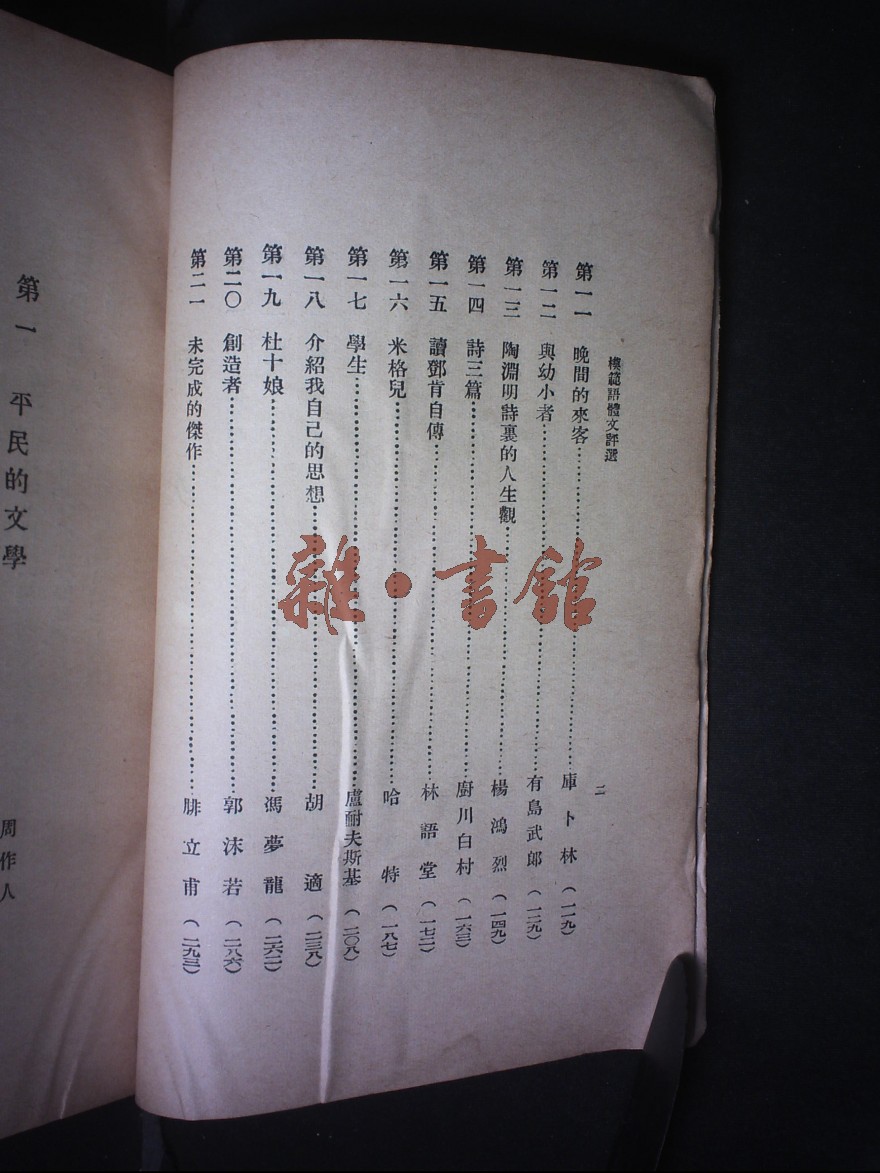 模範語體文評選
二
第一一 晚間的來客…庫卜林(一一九)
第一二 與幼小者…有島武郎(一二九)
第一三 陶淵明詩裏的人生觀…楊鴻烈(一四九)
第一四 詩三篇…廚川白村(一六三)
第一五 讀鄧肯自傳…林語堂(一七二)
第一六 米格兒…哈特(一八七)
第一七 學生…盧耐夫斯基(二〇八)
第一八 介紹我自己的思想…胡適(二三八)
第一九 杜十娘…馮夢龍(二六二)
第二〇 創造者…郭沫若(二八六)
第二一 未完成的傑作…腓立甫(二九三)
第一 平民的文學
周作人
雜·書館